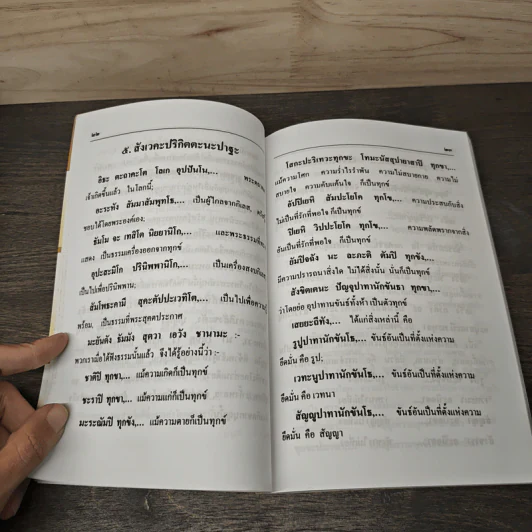 ๒๒
๕. สังเวคะปริกิตตะนะปาฐะ
อิธะ ตะถาคะโต โลเก อุปปันโน,... พระตถาคต
เจ้าเกิดขึ้นแล้ว ในโลกนี้;
อะระหัง สัมมาสัมพุทโธ,... เป็นผู้ไกลจากกิเลส, ตรัสรู้
ชอบได้โดยพระองค์เอง;
ธัมโม จะ เทสิโต นิยยานิโก,... และพระธรรมที่ทรง
แสดง เป็นธรรมเครื่องออกจากทุกข์
อุปะสะมิโก ปรินิพพานิโก,... เป็นเครื่องสงบกิเลส
เป็นไปเพื่อปรินิพพาน;
สัมโพธะคามี สุคะตัปปะเวทิโต,... เป็นไปเพื่อความรู้
พร้อม, เป็นธรรมที่พระสุคตประกาศ
มะยันตัง ธัมมัง สุตวา เอวัง ชานามะ :-
พวกเราเมื่อได้ฟังธรรมนั้นแล้ว จึงได้รู้อย่างนี้ว่า :-
ชาติปิ ทุกขา,... แม้ความเกิดก็เป็นทุกข์
ชะราปิ ทุกขา,... แม้ความแก่ก็เป็นทุกข์
มะระณัมปิ ทุกขัง,... แม้ความตายก็เป็นทุกข์
๒๓
โสกะปะริเทวะทุกขะ โทมะนัสสุปายาสาปิ ทุกขา,...
แม้ความโศก ความร่ำไรรำพัน ความไม่สบายกาย ความไม่
สบายใจ ความคับแค้นใจ ก็เป็นทุกข์
อัปปิเยหิ สัมปะโยโค ทุกโข,... ความประสบกับสิ่ง
ไม่เป็นที่รักที่พอใจ ก็เป็นทุกข์
ปิเยหิ วิปปะโยโค ทุกโข,... ความพลัดพรากจากสิ่ง
อันเป็นที่รักที่พอใจ ก็เป็นทุกข์
ยัมปิจฉัง นะ ละภะติ ตัมปิ ทุกขัง,...
มีความปรารถนาสิ่งใด ไม่ได้สิ่งนั้น นั่นก็เป็นทุกข์
สังขิตเตนะ ปัญจุปาทานักขันธา ทุกขา,...
ว่าโดยย่อ อุปาทานขันธ์ทั้งห้า เป็นตัวทุกข์
เสยยะถีทัง,... ได้แก่สิ่งเหล่านี้ คือ
รูปูปาทานักขันโธ,... ขันธ์อันเป็นที่ตั้งแห่งความ
ยึดมั่น คือ รูป;
เวทะนูปาทานักขันโธ,... ขันธ์อันเป็นที่ตั้งแห่งความ
ยึดมั่น คือ เวทนา
สัญญูปาทานักขันโธ,... ขันธ์อันเป็นที่ตั้งแห่งความ
ยึดมั่น คือ สัญญา